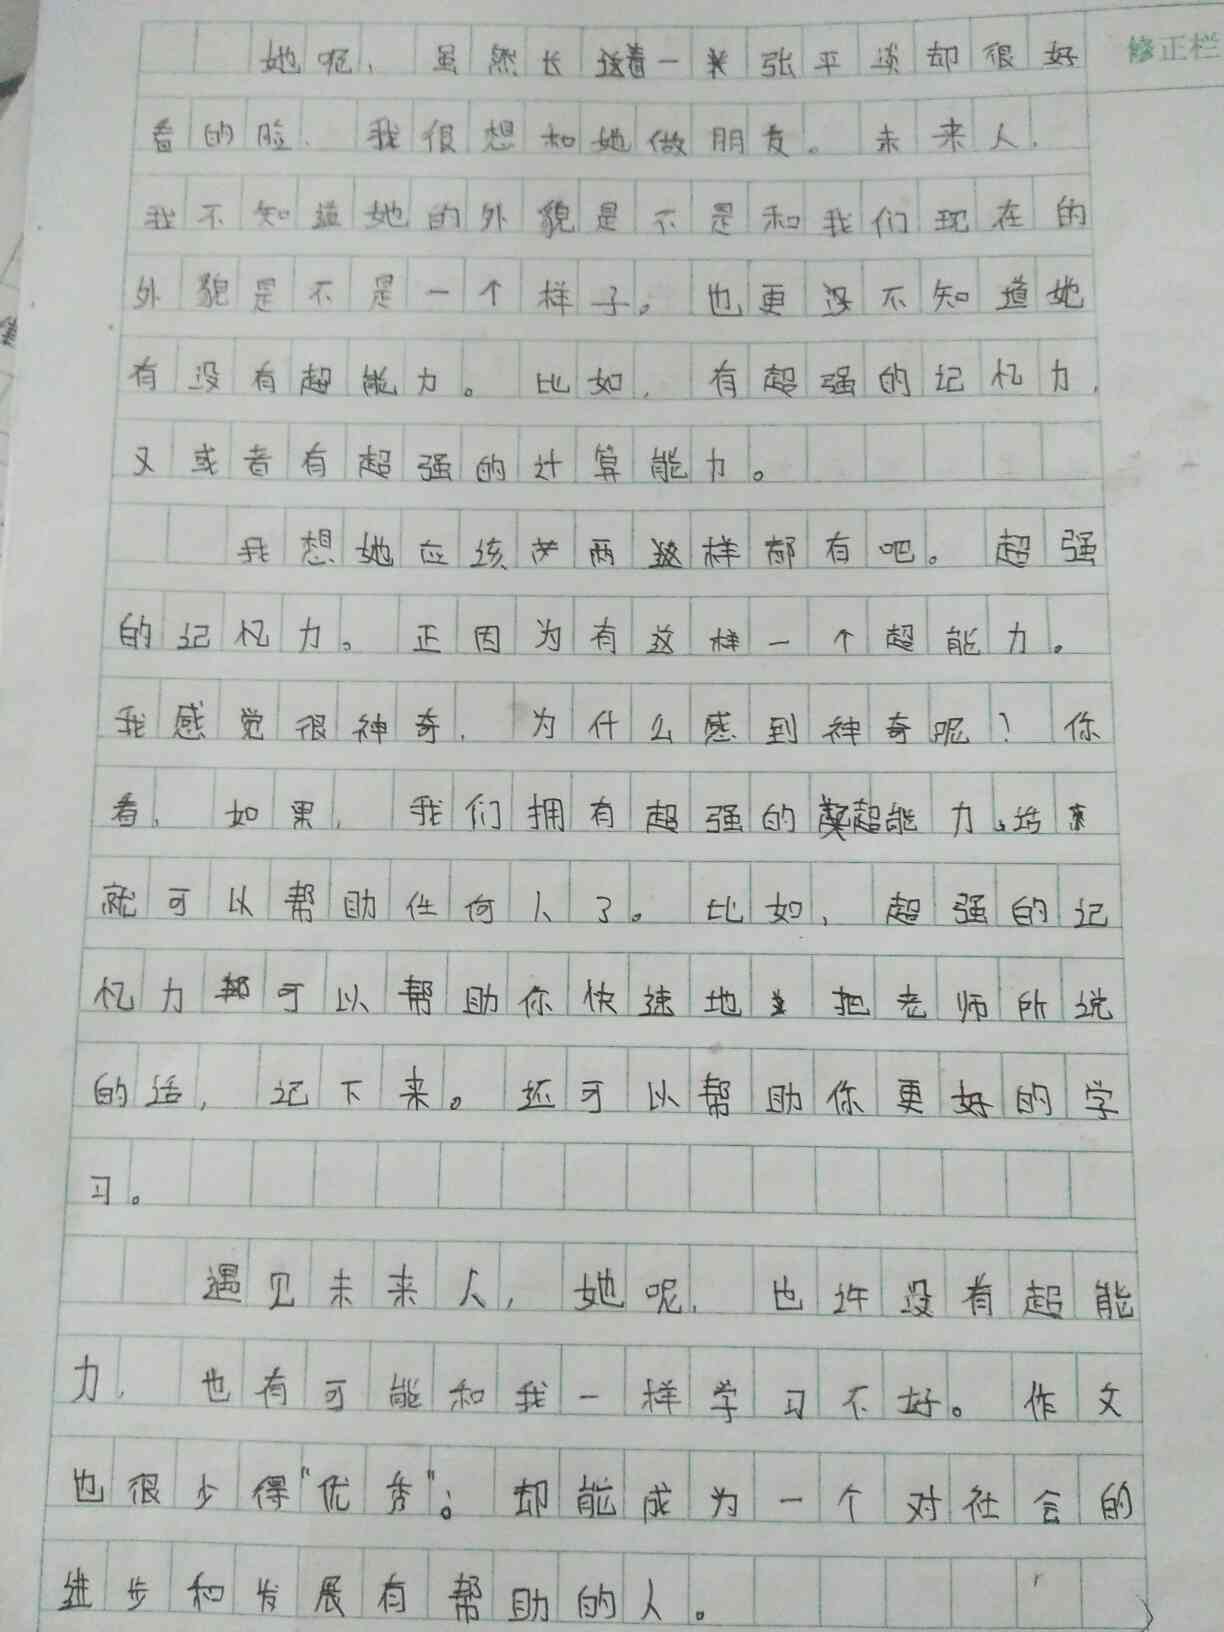 她呢，虽然长着一张平淡却很好
修正栏
看的脸，我很想和她做朋友。未来人，
我不知道她的外貌是不是和我们现在的
外貌是不是一个样子。也更没不知道她
有没有超能力。比如，有超强的记忆力，
又或者有超强的计算能力。
我想她应该两这样都有吧。超强
的记忆力。正因为有这样一个超能力。
我感觉很神奇，为什么感到神奇呢？你
看，如果，我们拥有超强的超能力，
就可以帮助任何人了。比如，超强的记
忆力可以帮助你快速地把老师所说
的话，记下来。还可以帮助你更好的学
习。
遇见未来人，她呢，也许没有超能
力，也有可能和我一样学习不好。作文
也很少得“优秀”。却能成为一个对社会的
进步和发展有帮助的人。